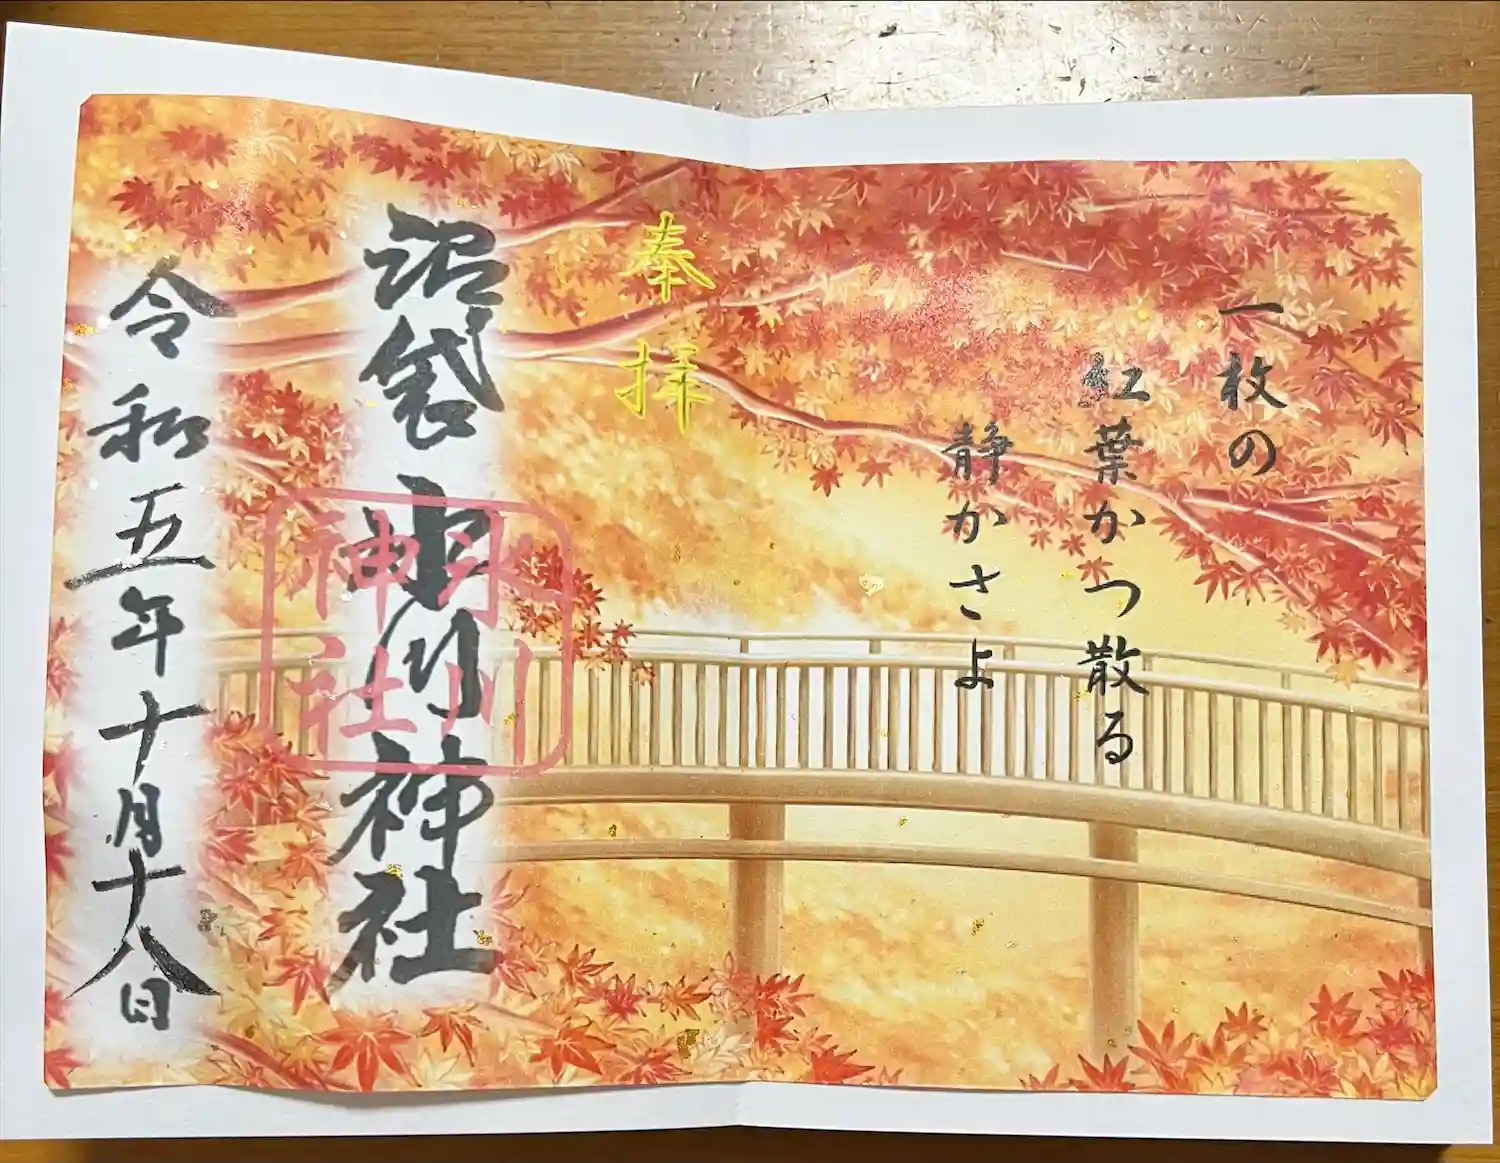 一枚の
紅葉かつ散る
静かさよ
奉拝
沼袋氷川神社
氷川
神社
令和五年十月十八日